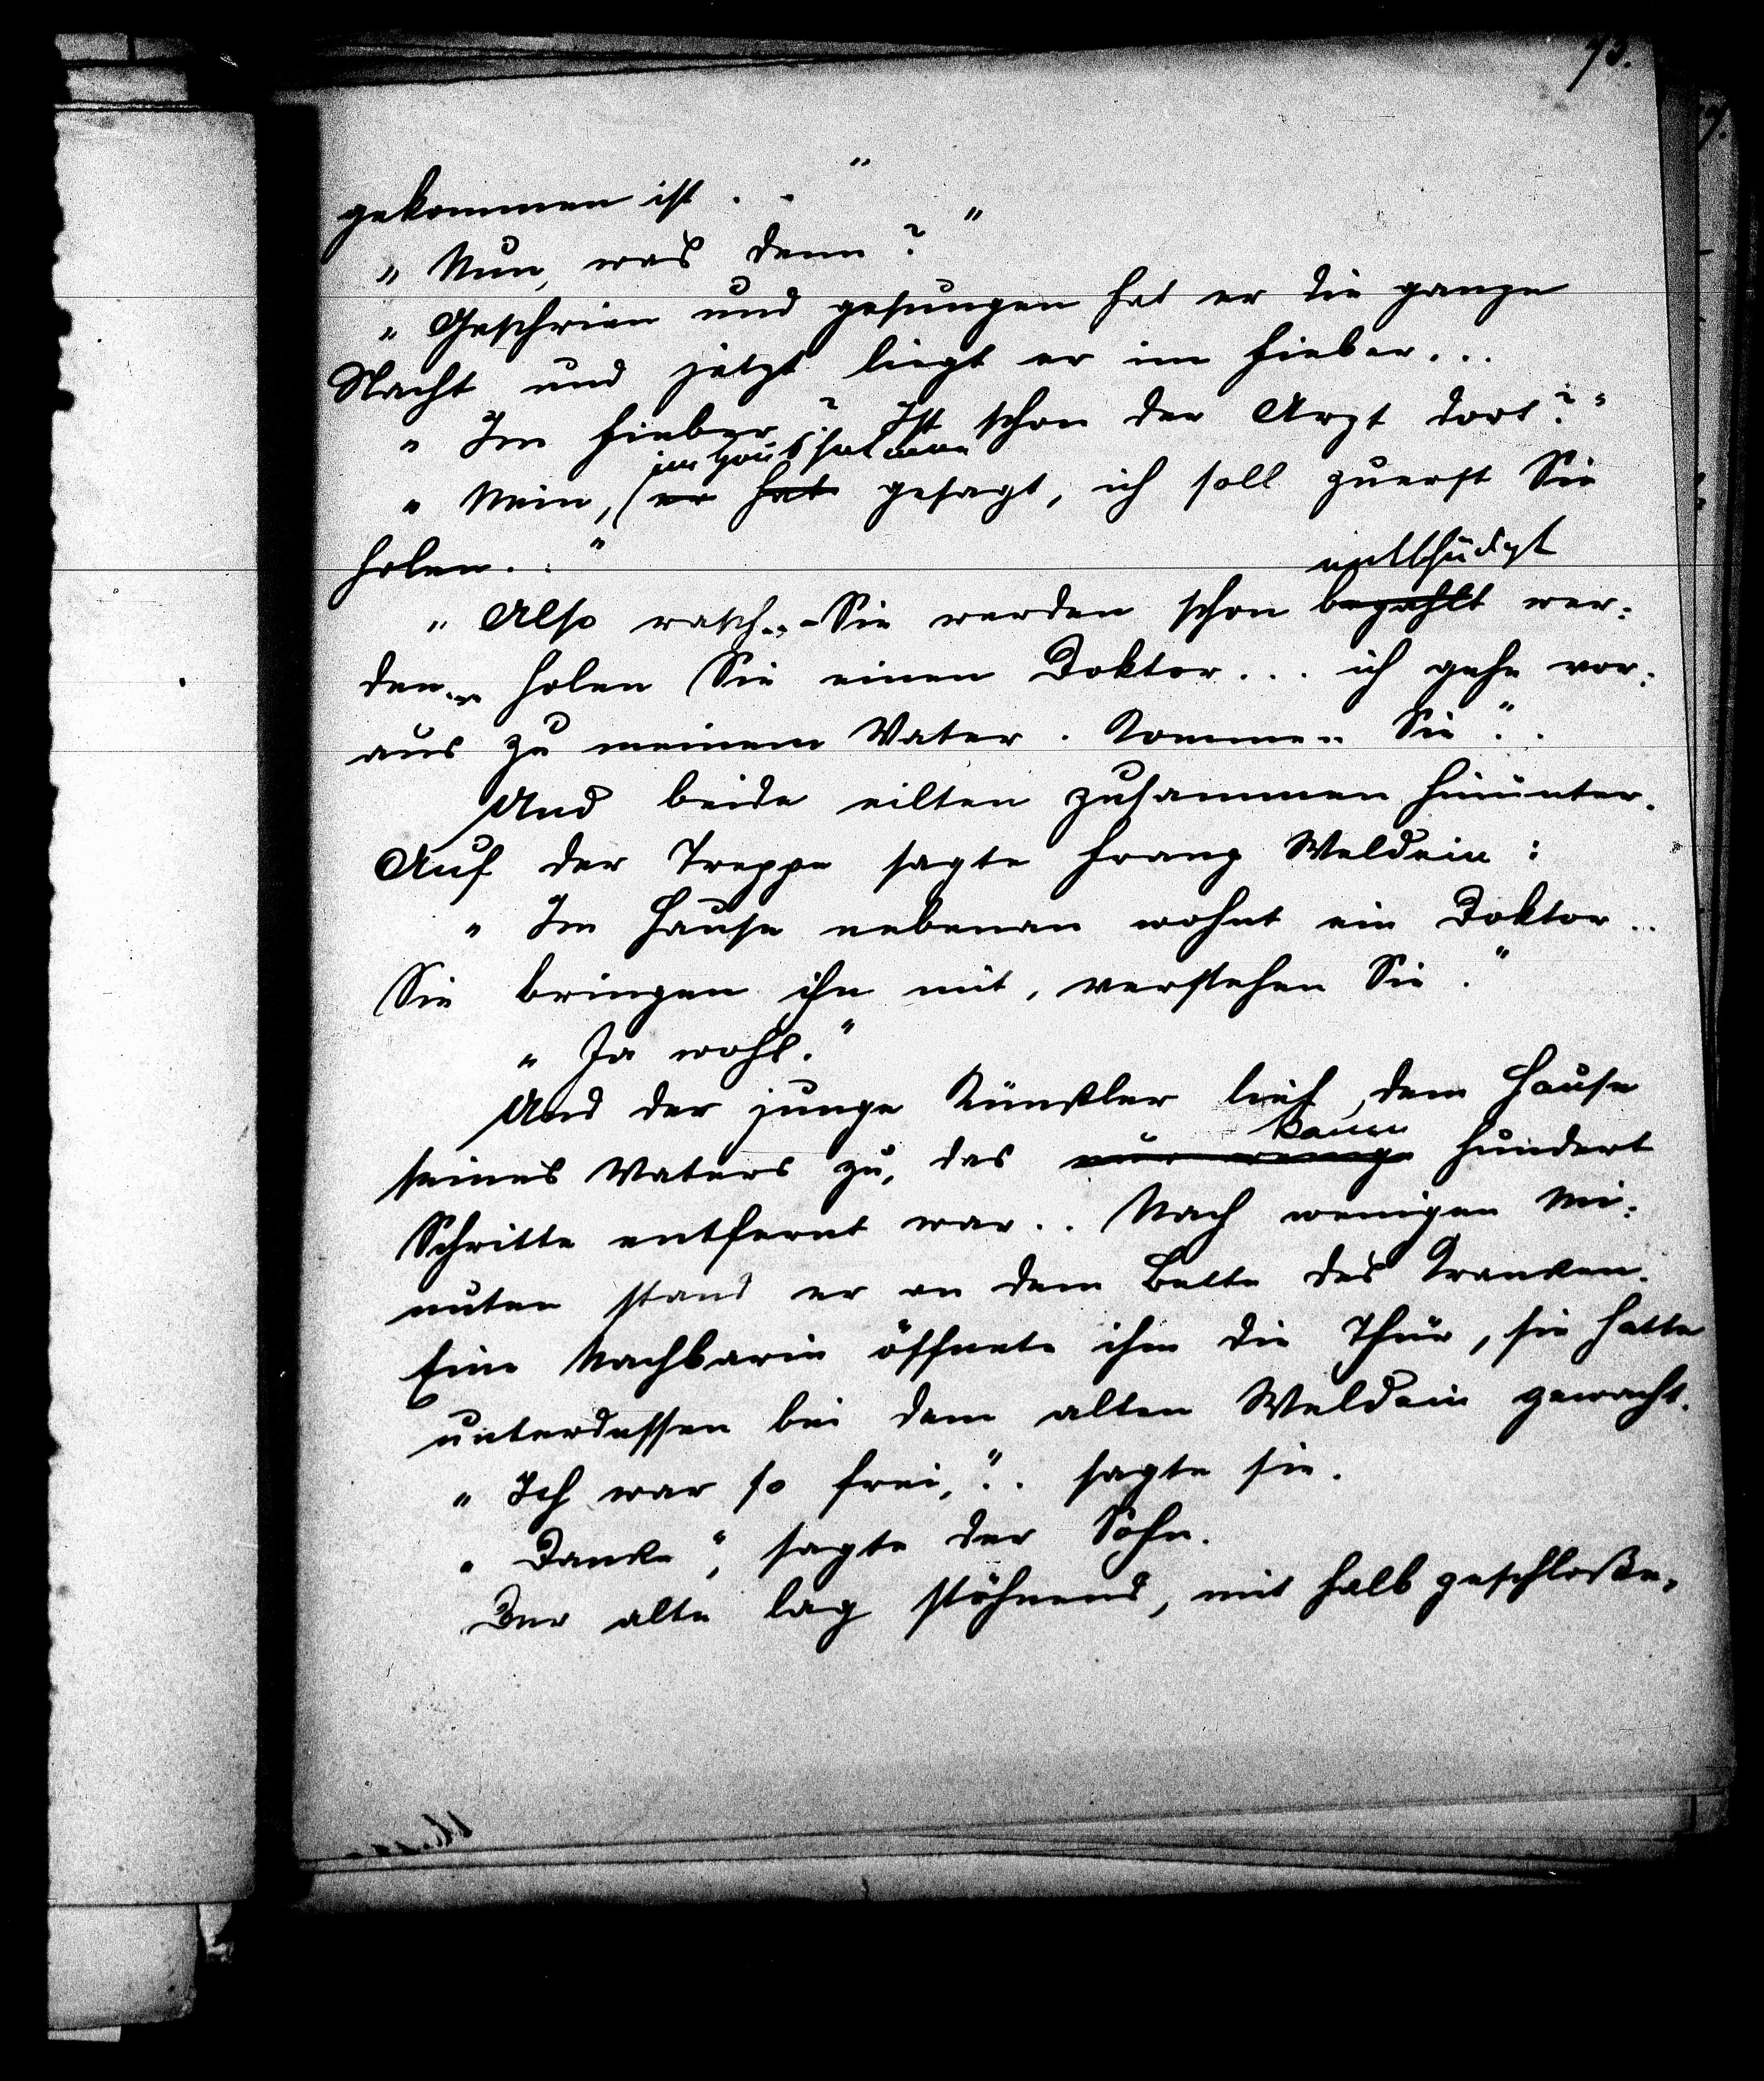 73.
gekommen ist . . "
„ Nun, was denn ? "
„ Geschrien und gesungen hat er die ganze
Nacht und jetzt liegt er im Fieber...
„ Im Fieber? Ist schon der Arzt dort?"
im Haus hat man
„ Nein, (er hat gesagt, ich soll zuerst Sie
holen. . "
entschädigt
„ Also rasch... Sie werden schon bezahlt wer-
den... holen Sie einen Doktor... ich gehe vor-
aus zu meinem Vater. Kommen Sie"..
Und beide eilten zusammen hinunter.
Auf der Treppe sagte Franz Weldein :
„ Im Hause nebenan wohnt ein Doktor..
Sie bringen ihn mit, verstehen Sie."
„ Ja wohl."
Und der junge Künstler lief, dem Hause
kaum
seines Vaters zu, das nur wenige hundert
Schritte entfernt war.. Nach wenigen Mi-
nuten stand er an dem Bette des Kranken.
Eine Nachbarin öffnete ihm die Thür, sie hatte
unterdessen bei dem alten Weldein gewacht.
„ Ich war so frei,".. sagte sie.
„ Danke", sagte der Sohn.
Der alte lag stöhnend, mit halb geschloße-